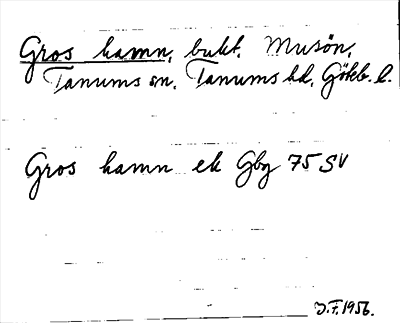 Gros hamn, bukt, Musön,
Tanums sn, Tanums hd, Göteb. l.
Gros hamn ek Gbg 75 SV
J.F. 1956.